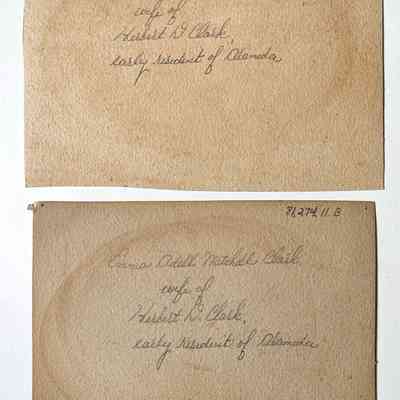 wife of
Herbert D. Clark,
early resident of Alameda
81,274, 11. B
Emma Odell Mitchel Clark
wife of
Herbert D. Clark,
early resident of Alameda